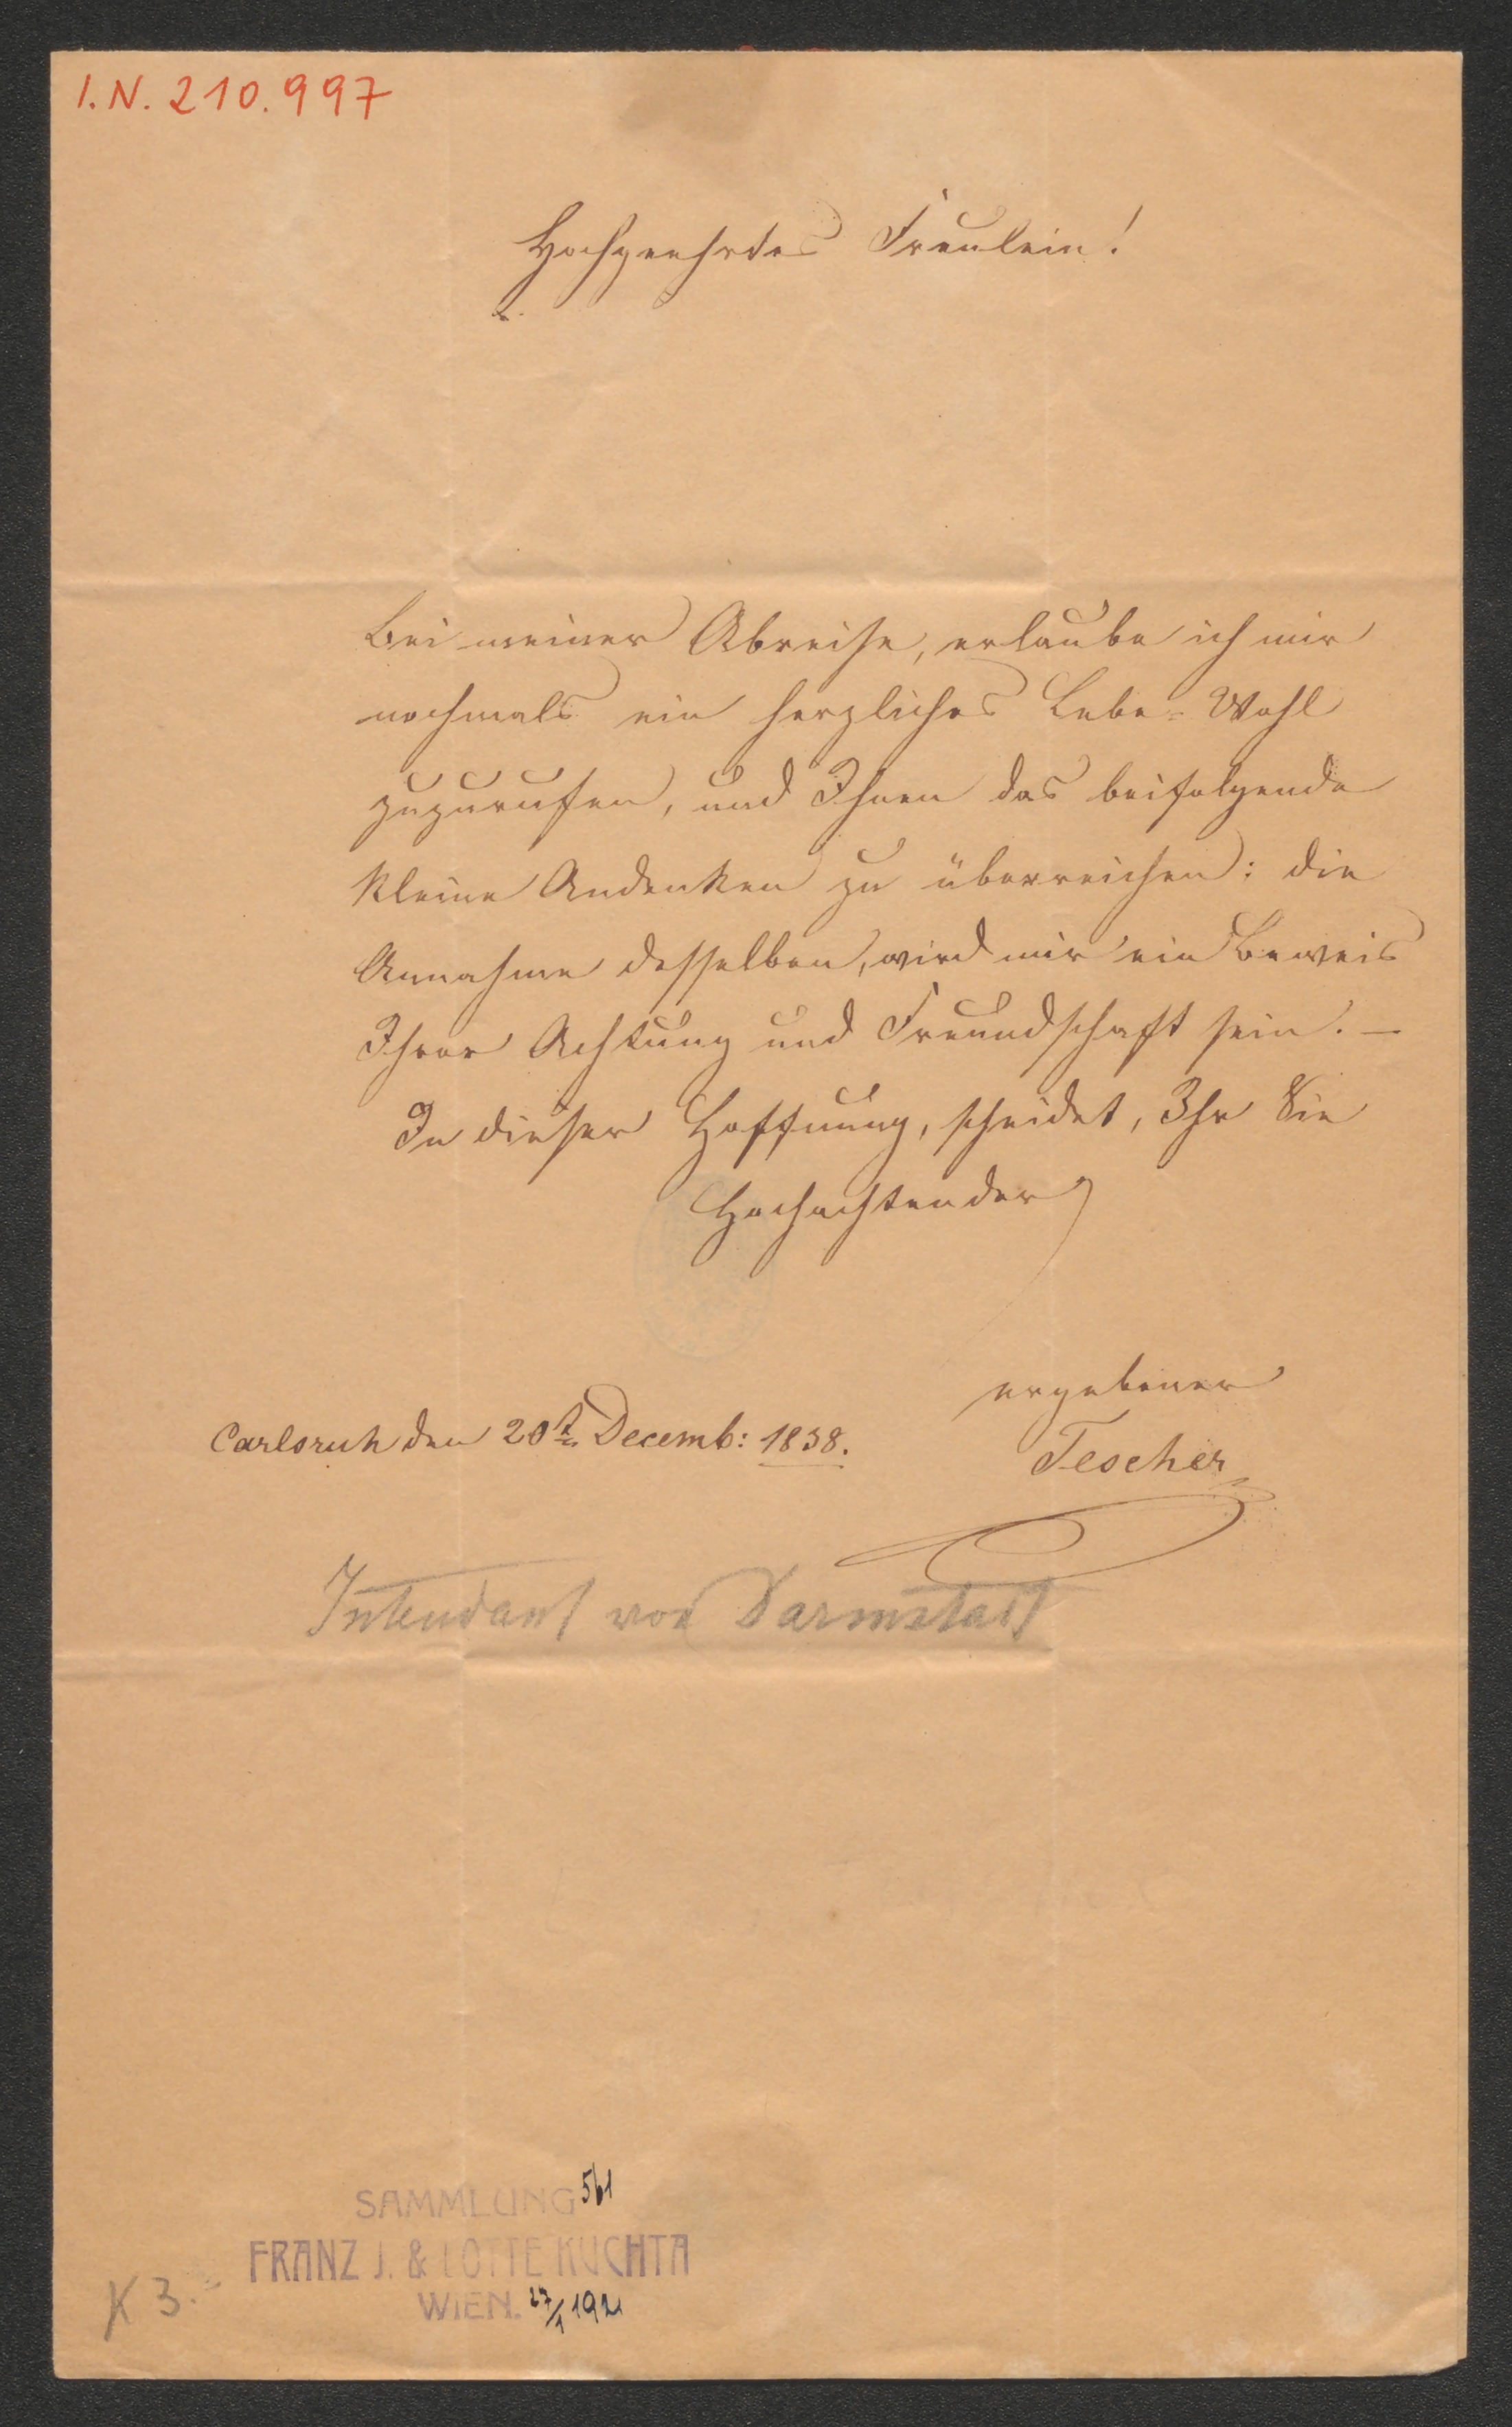 I.N. 210.997
Hochgeehrtes Fräulein!
Bei meiner Abreise, erlaube ich mir
nochmals ein herzliches Lebe-Wohl
zuzurufen, und Ihnen das beifolgende
kleine Andenken zu überreichen: die
Annahme desselben, wird mir ein Beweis
Ihrer Achtung und Freundschaft sein. —
In dieser Hoffnung, scheidet, Ihr Sie
Hochachtender
ergebener
Carlsruh den 20t Decemb: 1838.
Tescher
Intendant von Darmstadt
SAMMLUNG 561
FRANZ J. & LOTTE KUCHTA
WIEN. 27/1 1921
K 3.-